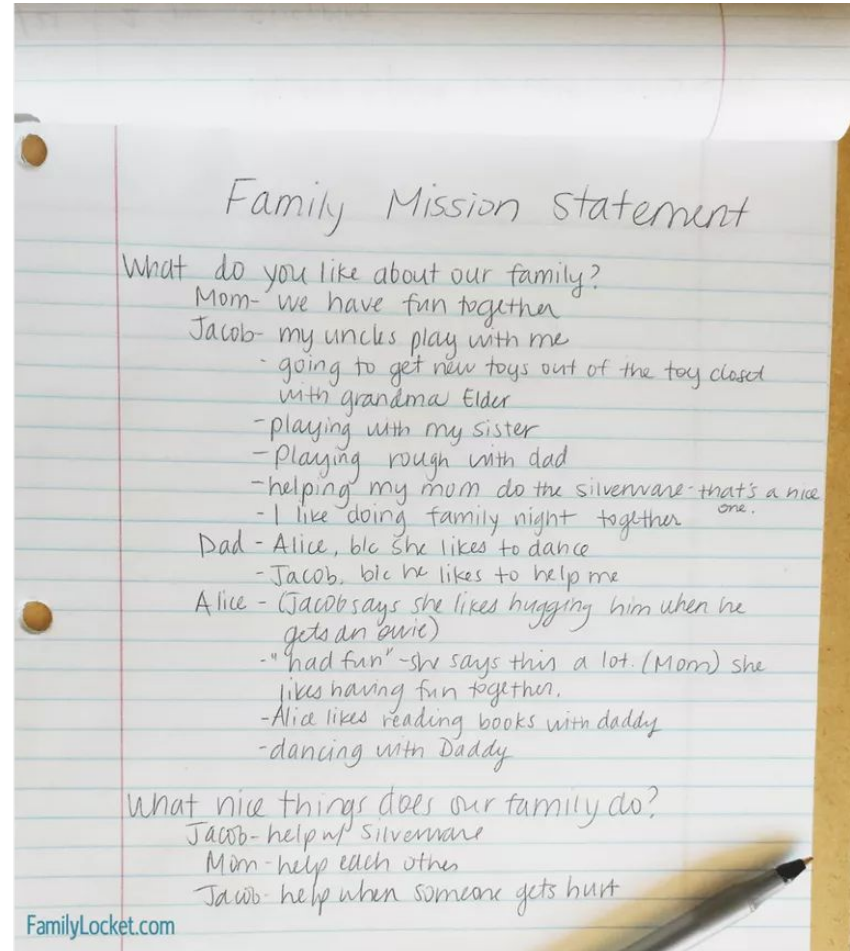 Family Mission Statement
What do you like about our family?
Mom- we have fun together
Jacob- my uncles play with me
- going to get new toys out of the toy closet
with grandma Elder
- playing with my sister
- Playing rough with dad
- helping my mom do the silverware - that's a nice
one.
- I like doing family night together
Dad - Alice, b/c she likes to dance
- Jacob, b/c he likes to help me
Alice - (Jacob says she likes hugging him when he
gets an owie)
- "had fun" - she says this a lot. (Mom) she
likes having fun together.
- Alice likes reading books with daddy
- dancing with Daddy
What nice things does our family do?
Jacob- help w/ Silverware
Mom- help each other
Jacob- help when someone gets hurt
FamilyLocket.com